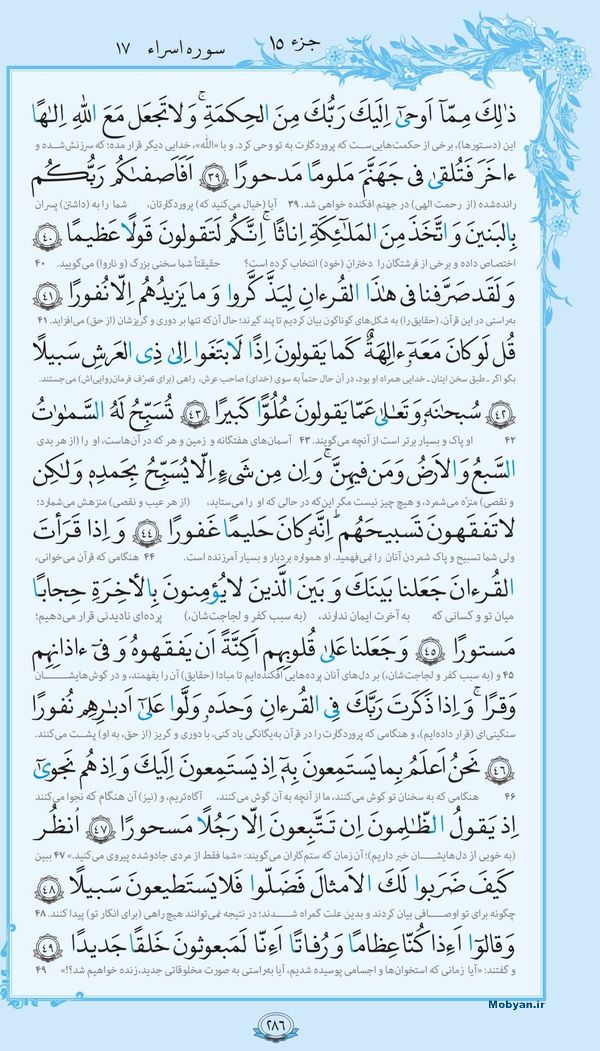 جزء ۱۵
سوره اسراء ۱۷
ذٰلِكَ مِمّآ اَوحىٰٓ اِلَيكَ رَبُّكَ مِنَ الحِكمَةِ ۗ وَلا تَجعَل مَعَ اللّٰهِ اِلٰهًا
این (دستورها)، برخی از حکمت‌هایی‌ست که پروردگارت به تو وحی کرد. و با «الله»، خدایی دیگر قرار مده؛ که سرزنش‌شده و
ءاخَرَ فَتُلقىٰ فى جَهَنَّمَ مَلومًا مَدحورًا ﴿۳۹﴾ اَفَاَصفىٰكُم رَبُّكُم
رانده‌شده (از رحمت الهی) در جهنم افکنده خواهی شد. ۳۹ آیا (خیال می‌کنید که) پروردگارتان، شما را به (داشتن) پسران
بِالبَنينَ وَاتَّخَذَ مِنَ المَلٰٓئِكَةِ اِناثًا ۚ اِنَّكُم لَتَقولونَ قَولًا عَظيمًا ﴿۴۰﴾
اختصاص داده و برخی از فرشتگان را دختران (خود) انتخاب کرده است؟ حقیقتاً شما سخنی بزرگ (و ناروا) می‌گویید. ۴۰
وَلَقَد صَرَّفنا فى هٰذَا القُرءانِ لِيَذَّكَّروا وَما يَزيدُهُم اِلّا نُفورًا ﴿۴۱﴾
به‌راستی در این قرآن، (حقایق را) به شکل‌های گوناگون بیان کردیم تا پند گیرند؛ حال آن‌که تنها بر دوری و گریزشان (از حق) می‌افزاید. ۴۱
قُل لَو كانَ مَعَهٗٓ ءالِهَةٌ كَما يَقولونَ اِذًا لَابتَغَوا اِلىٰ ذِى العَرشِ سَبيلًا
بگو اگر ـ طبق سخن اینان ـ خدایی همراه او بود، در آن حال حتماً به سوی (خدای) صاحب عرش، راهی (برای تصرّف فرمان‌روایی‌اش) می‌جستند.
﴿۴۲﴾ سُبحانَهٗ وَتَعالىٰ عَمّا يَقولونَ عُلُوًّا كَبيرًا ﴿۴۳﴾ تُسَبِّحُ لَهُ السَّمٰوٰتُ
۴۲ او پاک و بسیار برتر است از آنچه می‌گویند. ۴۳ آسمان‌های هفتگانه و زمین و هر که در آن‌هاست، او را (از هر بدی
السَّبعُ وَالاَرضُ وَمَن فيهِنَّ ۚ وَاِن مِن شَىءٍ اِلّا يُسَبِّحُ بِحَمدِهٖ وَلٰكِن
و نقصی) منزّه می‌شمرد، و هیچ چیز نیست مگر این‌که در حالی که او را می‌ستاید، (از هر عیب و نقصی) منزهش می‌شمارد؛
لا تَفقَهونَ تَسبيحَهُم ۗ اِنَّهٗ كانَ حَليمًا غَفورًا ﴿۴۴﴾ وَاِذا قَرَأتَ
ولی شما تسبیح و پاک شمردن آنان را نمی‌فهمید. او همواره بردبار و بسیار آمرزنده است. ۴۴ هنگامی که قرآن می‌خوانی،
القُرءانَ جَعَلنا بَينَكَ وَبَينَ الَّذينَ لا يُؤمِنونَ بِالآخِرَةِ حِجابًا
میان تو و کسانی که به آخرت ایمان ندارند، (به سبب کفر و لجاجت‌شان) پرده‌ای نادیدنی قرار می‌دهیم؛
مَستورًا ﴿۴۵﴾ وَجَعَلنا عَلىٰ قُلوبِهِم اَكِنَّةً اَن يَفقَهوهُ وَفى ءاذانِهِم
۴۵ و (به سبب کفر و لجاجت‌شان،) بر دل‌های آنان پرده‌هایی افکنده‌ایم تا مبادا (حقایق) آن را بفهمند، و در گوش‌هایشان
وَقرًا ۚ وَاِذا ذَكَرتَ رَبَّكَ فِى القُرءانِ وَحدَهٗ وَلَّوا عَلىٰٓ اَدبٰرِهِم نُفورًا
سنگینی‌ای (قرار داده‌ایم)، و هنگامی که پروردگارت را در قرآن به‌یگانگی یاد کنی، با دوری و گریز (از حق، به او) پشت می‌کنند.
﴿۴۶﴾ نَحنُ اَعلَمُ بِما يَستَمِعونَ بِهٖٓ اِذ يَستَمِعونَ اِلَيكَ وَاِذ هُم نَجوىٰٓ
۴۶ هنگامی که به سخنان تو گوش می‌کنند، ما از آنچه به آن گوش می‌کنند، آگاه‌تریم، و (نیز) آن هنگام که نجوا می‌کنند
اِذ يَقولُ الظّٰلِمونَ اِن تَتَّبِعونَ اِلّا رَجُلًا مَسحورًا ﴿۴۷﴾ اُنظُر
(به خوبی از دل‌هایشان خبر داریم)؛ آن زمان که ستم‌کاران می‌گویند: «شما فقط از مردی جادوشده پیروی می‌کنید.» ۴۷ ببین
كَيفَ ضَرَبوا لَكَ الاَمثالَ فَضَلّوا فَلا يَستَطيعونَ سَبيلًا ﴿۴۸﴾
چگونه برای تو اوصافی بیان کردند و بدین علت گمراه شدند؛ در نتیجه نمی‌توانند هیچ راهی (برای انکار تو) پیدا کنند. ۴۸
وَقالوٓا اَءِذا كُنّا عِظامًا وَرُفاتًا اَءِنّا لَمَبعوثونَ خَلقًا جَديدًا ﴿۴۹﴾
و گفتند: «آیا زمانی که استخوان‌ها و اجسامی پوسیده شدیم، آیا به‌راستی به صورت مخلوقاتی جدید، زنده خواهیم شد؟!» ۴۹
Mobyan.ir
۲۸۶